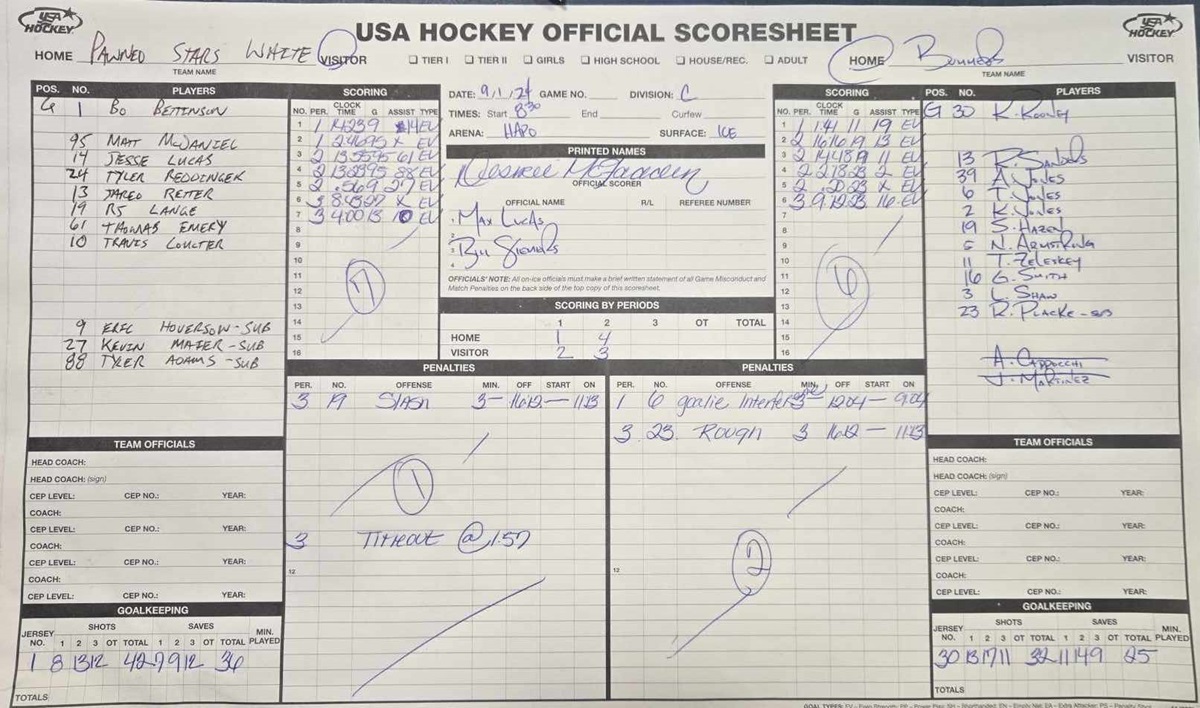 USA HOCKEY
USA HOCKEY OFFICIAL SCORESHEET
USA HOCKEY
HOME PAWNED STARS WHITE VISITOR
TEAM NAME
☐ TIER I ☐ TIER II ☐ GIRLS ☐ HIGH SCHOOL ☐ HOUSE/REC. ☐ ADULT
HOME VISITOR
TEAM NAME
POS. NO. PLAYERS
G 1 BO BETTINSON
95 MATT McDANIEL
14 JESSE LUCAS
24 TYLER REDDINGER
13 JARED REITER
19 RJ LANGE
61 THOMAS EMERY
10 TRAVIS COULTER
9 ERIC HOVERSON-SUB
27 KEVIN MAIER-SUB
88 TYLER ADAMS-SUB
SCORING
NO. PER. CLOCK TIME G ASSIST TYPE
1 1 14EV
2 1 X EV
3 2 61 EV
4 2 88 EV
5 2 .569 27 EV
6 3 27 X EV
7 3 4:00 13 10 EV
8
9
10
11
12
13
14
15
16
7
DATE: 9/1/24 GAME NO. DIVISION: C
TIMES: Start 8:30 End Curfew
ARENA: HAPO SURFACE: ICE
PRINTED NAMES
OFFICIAL SCORER
OFFICIAL NAME R/L REFEREE NUMBER
1 MAX LUCAS
2
3
4
OFFICIALS' NOTE: All on-ice officials must make a brief written statement of all Game Misconduct and
Match Penalties on the back side of the top copy of this scoresheet.
SCORING BY PERIODS
1 2 3 OT TOTAL
HOME 1 4
VISITOR 2 3
SCORING
NO. PER. CLOCK TIME G ASSIST TYPE
1 1 1:41 11 19 EV
2 2 16:16 19 13 EV
3 2 14:48 19 11 EV
4 2 2:18 23 2 EV
5 2 .50 23 X EV
6 3 9:12 23 16 EV
7
8
9
10
11
12
13
14
15
16
6
POS. NO. PLAYERS
G 30 K. ROONEY
13 R. SANDERS
39 A. JONES
6 T. JONES
2 K. JONES
19 S. HAZEN
5 N. ARMSTRONG
11 T. ZELESKEY
16 G. SMITH
3 L. SHAW
23 R. PLACKE-SUB
A. CAPPOCCHI
J. MARTINEZ
PENALTIES
PER. NO. OFFENSE MIN. OFF START ON
3 19 SLASH 3 - 16:12 - 11:23
1
3 TIMEOUT @ 1:57
12
PENALTIES
PER. NO. OFFENSE MIN. OFF START ON
1 6 goalie Interference 3 - 12:04 - 9:04
3 23 ROUGH 3 16:12 - 11:23
2
12
TEAM OFFICIALS
HEAD COACH:
HEAD COACH: (sign)
CEP LEVEL: CEP NO.: YEAR:
COACH:
CEP LEVEL: CEP NO.: YEAR:
COACH:
CEP LEVEL: CEP NO.: YEAR:
COACH:
CEP LEVEL: CEP NO.: YEAR:
TEAM OFFICIALS
HEAD COACH:
HEAD COACH: (sign)
CEP LEVEL: CEP NO.: YEAR:
COACH:
CEP LEVEL: CEP NO.: YEAR:
COACH:
CEP LEVEL: CEP NO.: YEAR:
COACH:
CEP LEVEL: CEP NO.: YEAR:
GOALKEEPING
JERSEY NO. SHOTS 1 2 3 OT TOTAL SAVES 1 2 3 OT TOTAL MIN. PLAYED
1 8 13 12 42 7 9 12 36
TOTALS
GOALKEEPING
JERSEY NO. SHOTS 1 2 3 OT TOTAL SAVES 1 2 3 OT TOTAL MIN. PLAYED
30 13 17 11 32 11 14 9 25
TOTALS